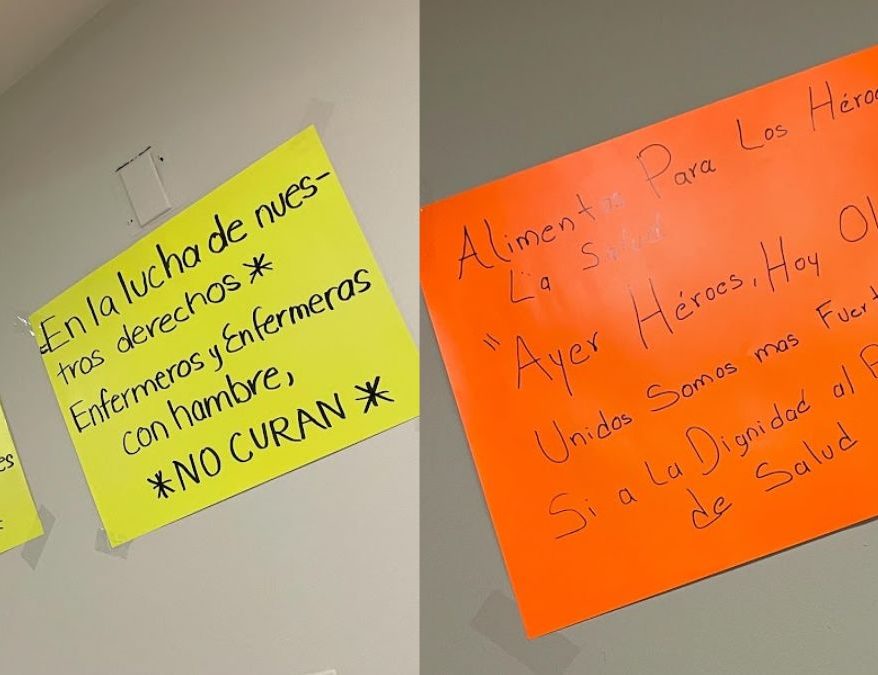 En la lucha de nues-
tros derechos *
Enfermeros y Enfermeras
con hambre,
*NO CURAN *
es
Alimentos Para Los Héroe
La Salud
" Ayer Héroes, Hoy Ol
Unidos Somos mas Fuert
Si a La Dignidad al P
de Salud